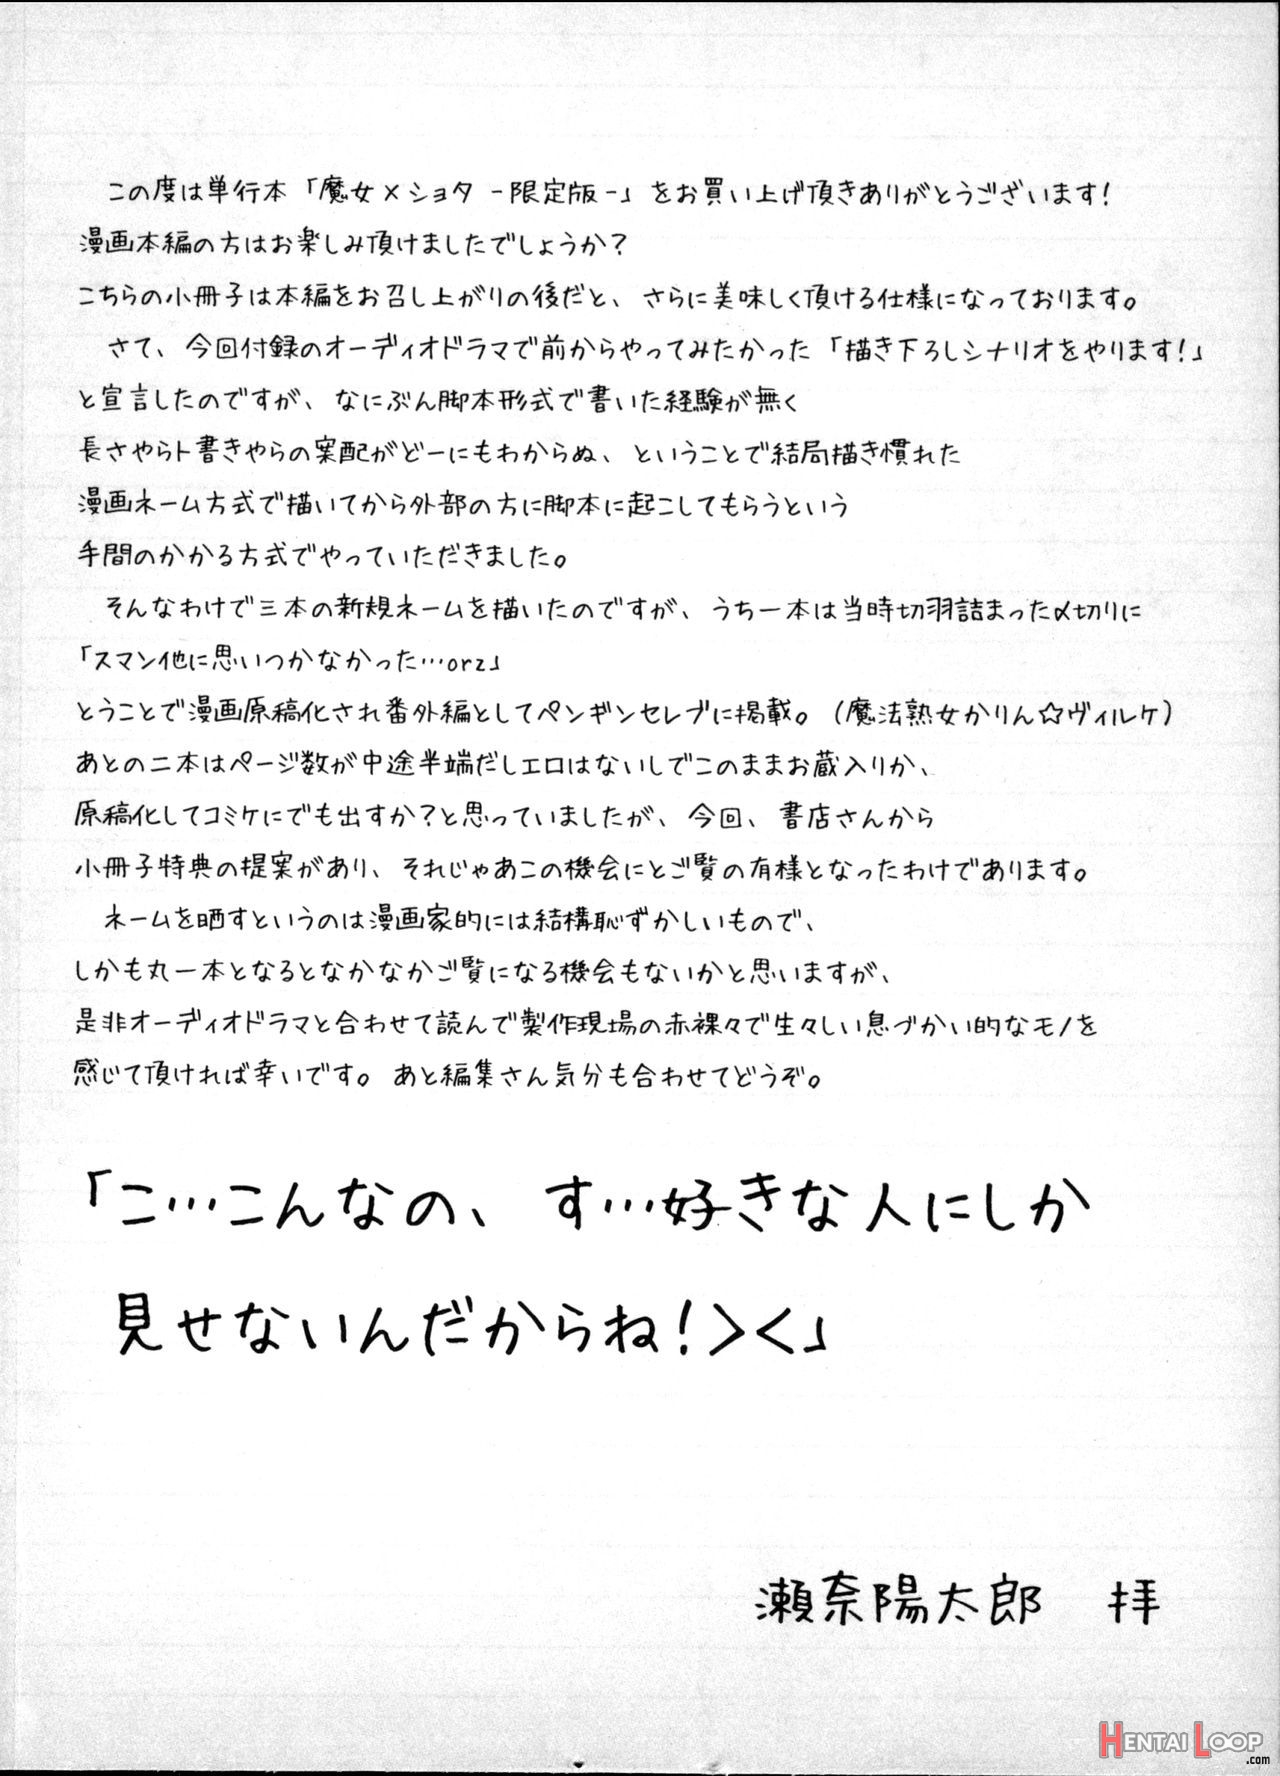 この度は単行本「魔女×ショタ -限定版-」をお買い上げ頂きありがとうございます!
漫画本編の方はお楽しみ頂けましたでしょうか?
こちらの小冊子は本編をお召し上がりの後だと、さらに美味しく頂ける仕様になっております。
さて、今回付録のオーディオドラマで前からやってみたかった「描き下ろしシナリオをやります!」
と宣言したのですが、なにぶん脚本形式で書いた経験が無く
長さやらト書きやらの案配がどーにもわからぬ、ということで結局描き慣れた
漫画ネーム方式で描いてから外部の方に脚本に起こしてもらうという
手間のかかる方式でやっていただきました。
そんなわけで三本の新規ネームを描いたのですが、うち一本は当時切羽詰まった〆切りに
「スマン他に思いつかなかった…orz」
とうことで漫画原稿化され番外編としてペンギンセレブに掲載。(魔法熟女かりん☆ヴィルケ)
あとの二本はページ数が中途半端だしエロはないしでこのままお蔵入りか、
原稿化してコミケにでも出すか?と思っていましたが、今回、書店さんから
小冊子特典の提案があり、それじゃあこの機会にとご覧の有様となったわけであります。
ネームを晒すというのは漫画家的には結構恥ずかしいもので、
しかも丸一本となるとなかなかご覧になる機会もないかと思いますが、
是非オーディオドラマと合わせて読んで製作現場の赤裸々で生々しい息づかい的なモノを
感じて頂ければ幸いです。あと編集さん気分も合わせてどうぞ。
「こ…こんなの、す…好きな人にしか
見せないんだからね!><」
瀬奈陽太郎 拝
HENTAI LOOP
.com